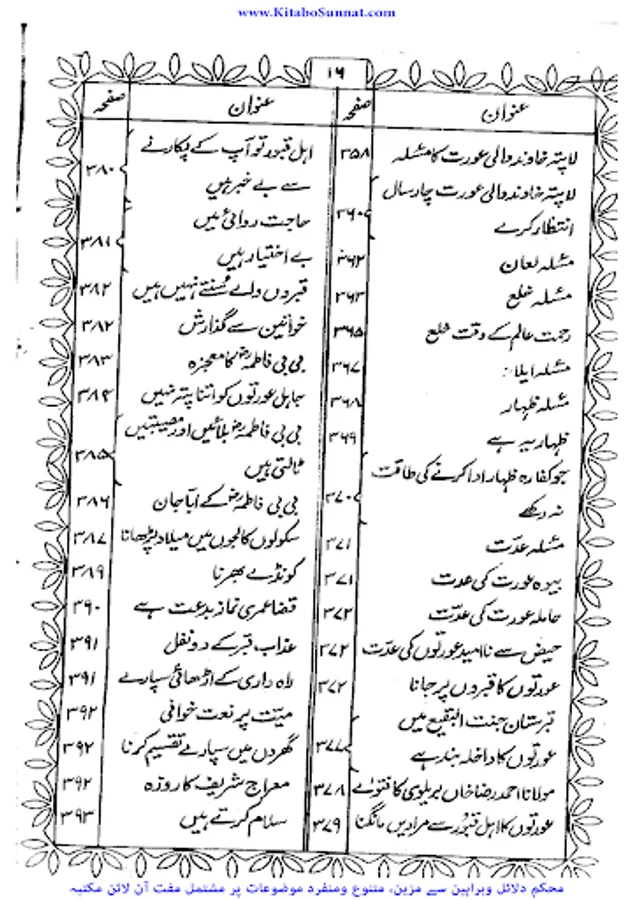 www.KitaboSunnat.com
۱۶
عنوان صفحہ
لاپتہ خاوند والی عورت کا مسئلہ ۳۵۸
لاپتہ خاوند والی عورت چار سال
انتظار کرے ۳۶۰
مسئلہ لعان ۳۶۲
مسئلہ خلع ۳۶۳
رحمت عالم کے وقت خلع ۳۶۵
مسئلہ ایلاء: ۳۶۷
مسئلہ ظہار ۳۶۸
ظہار یہ ہے ۳۶۹
جو کفارہ ظہار ادا کرنے کی طاقت
نہ رکھے ۳۷۰
مسئلہ عدّت ۳۷۱
بیوہ عورت کی عدت ۳۷۱
حاملہ عورت کی عدّت ۳۷۲
حیض سے ناامید عورتوں کی عدّت ۳۷۲
عورتوں کا قبروں پر جانا ۳۷۲
قبرستان جنت البقیع میں
عورتوں کا داخلہ بند ہے ۳۷۷
مولانا احمد رضا خاں بریلوی کا فتویٰ ۳۷۸
عورتوں کا اہل قبور سے مرادیں مانگنا ۳۷۹
عنوان صفحہ
اہل قبور تو آپ کے پکارنے
سے بے خبر ہیں ۳۸۰
حاجت روائی میں
بے اختیار ہیں ۳۸۱
قبروں والے سنتے نہیں ہیں ۳۸۲
خواتین سے گذارش ۳۸۲
بی بی فاطمہؓ کا معجزہ ۳۸۳
جاہل عورتوں کو اتنا پتہ نہیں ۳۸۴
بی بی فاطمہؓ بلائیں اور مصیبتیں
ٹالتی ہیں ۳۸۵
بی بی فاطمہؓ کے اباجان ۳۸۶
سکولوں کالجوں میں میلاد پڑھانا ۳۸۷
کونڈے بھرنا ۳۸۹
قضا عمری نماز بدعت ہے ۳۹۰
عذاب قبر کے دو نفل ۳۹۱
راہ داری کے اڑھائی سپارے ۳۹۱
میّت پر نعت خوانی ۳۹۲
گھروں میں سپارے تقسیم کرنا ۳۹۲
معراج شریف کا روزہ ۳۹۲
سلام کرتے ہیں ۳۹۳
محکم دلائل وبراہین سے مزین، متنوع ومنفرد موضوعات پر مشتمل مفت آن لائن مکتبہ